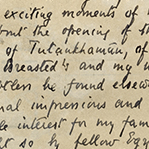 exciting moments of
the opening of
of Tutankhamun, of
Breasted's and my
he found elsew
nal impressions and
le interest for my fam
so by fellow Egy